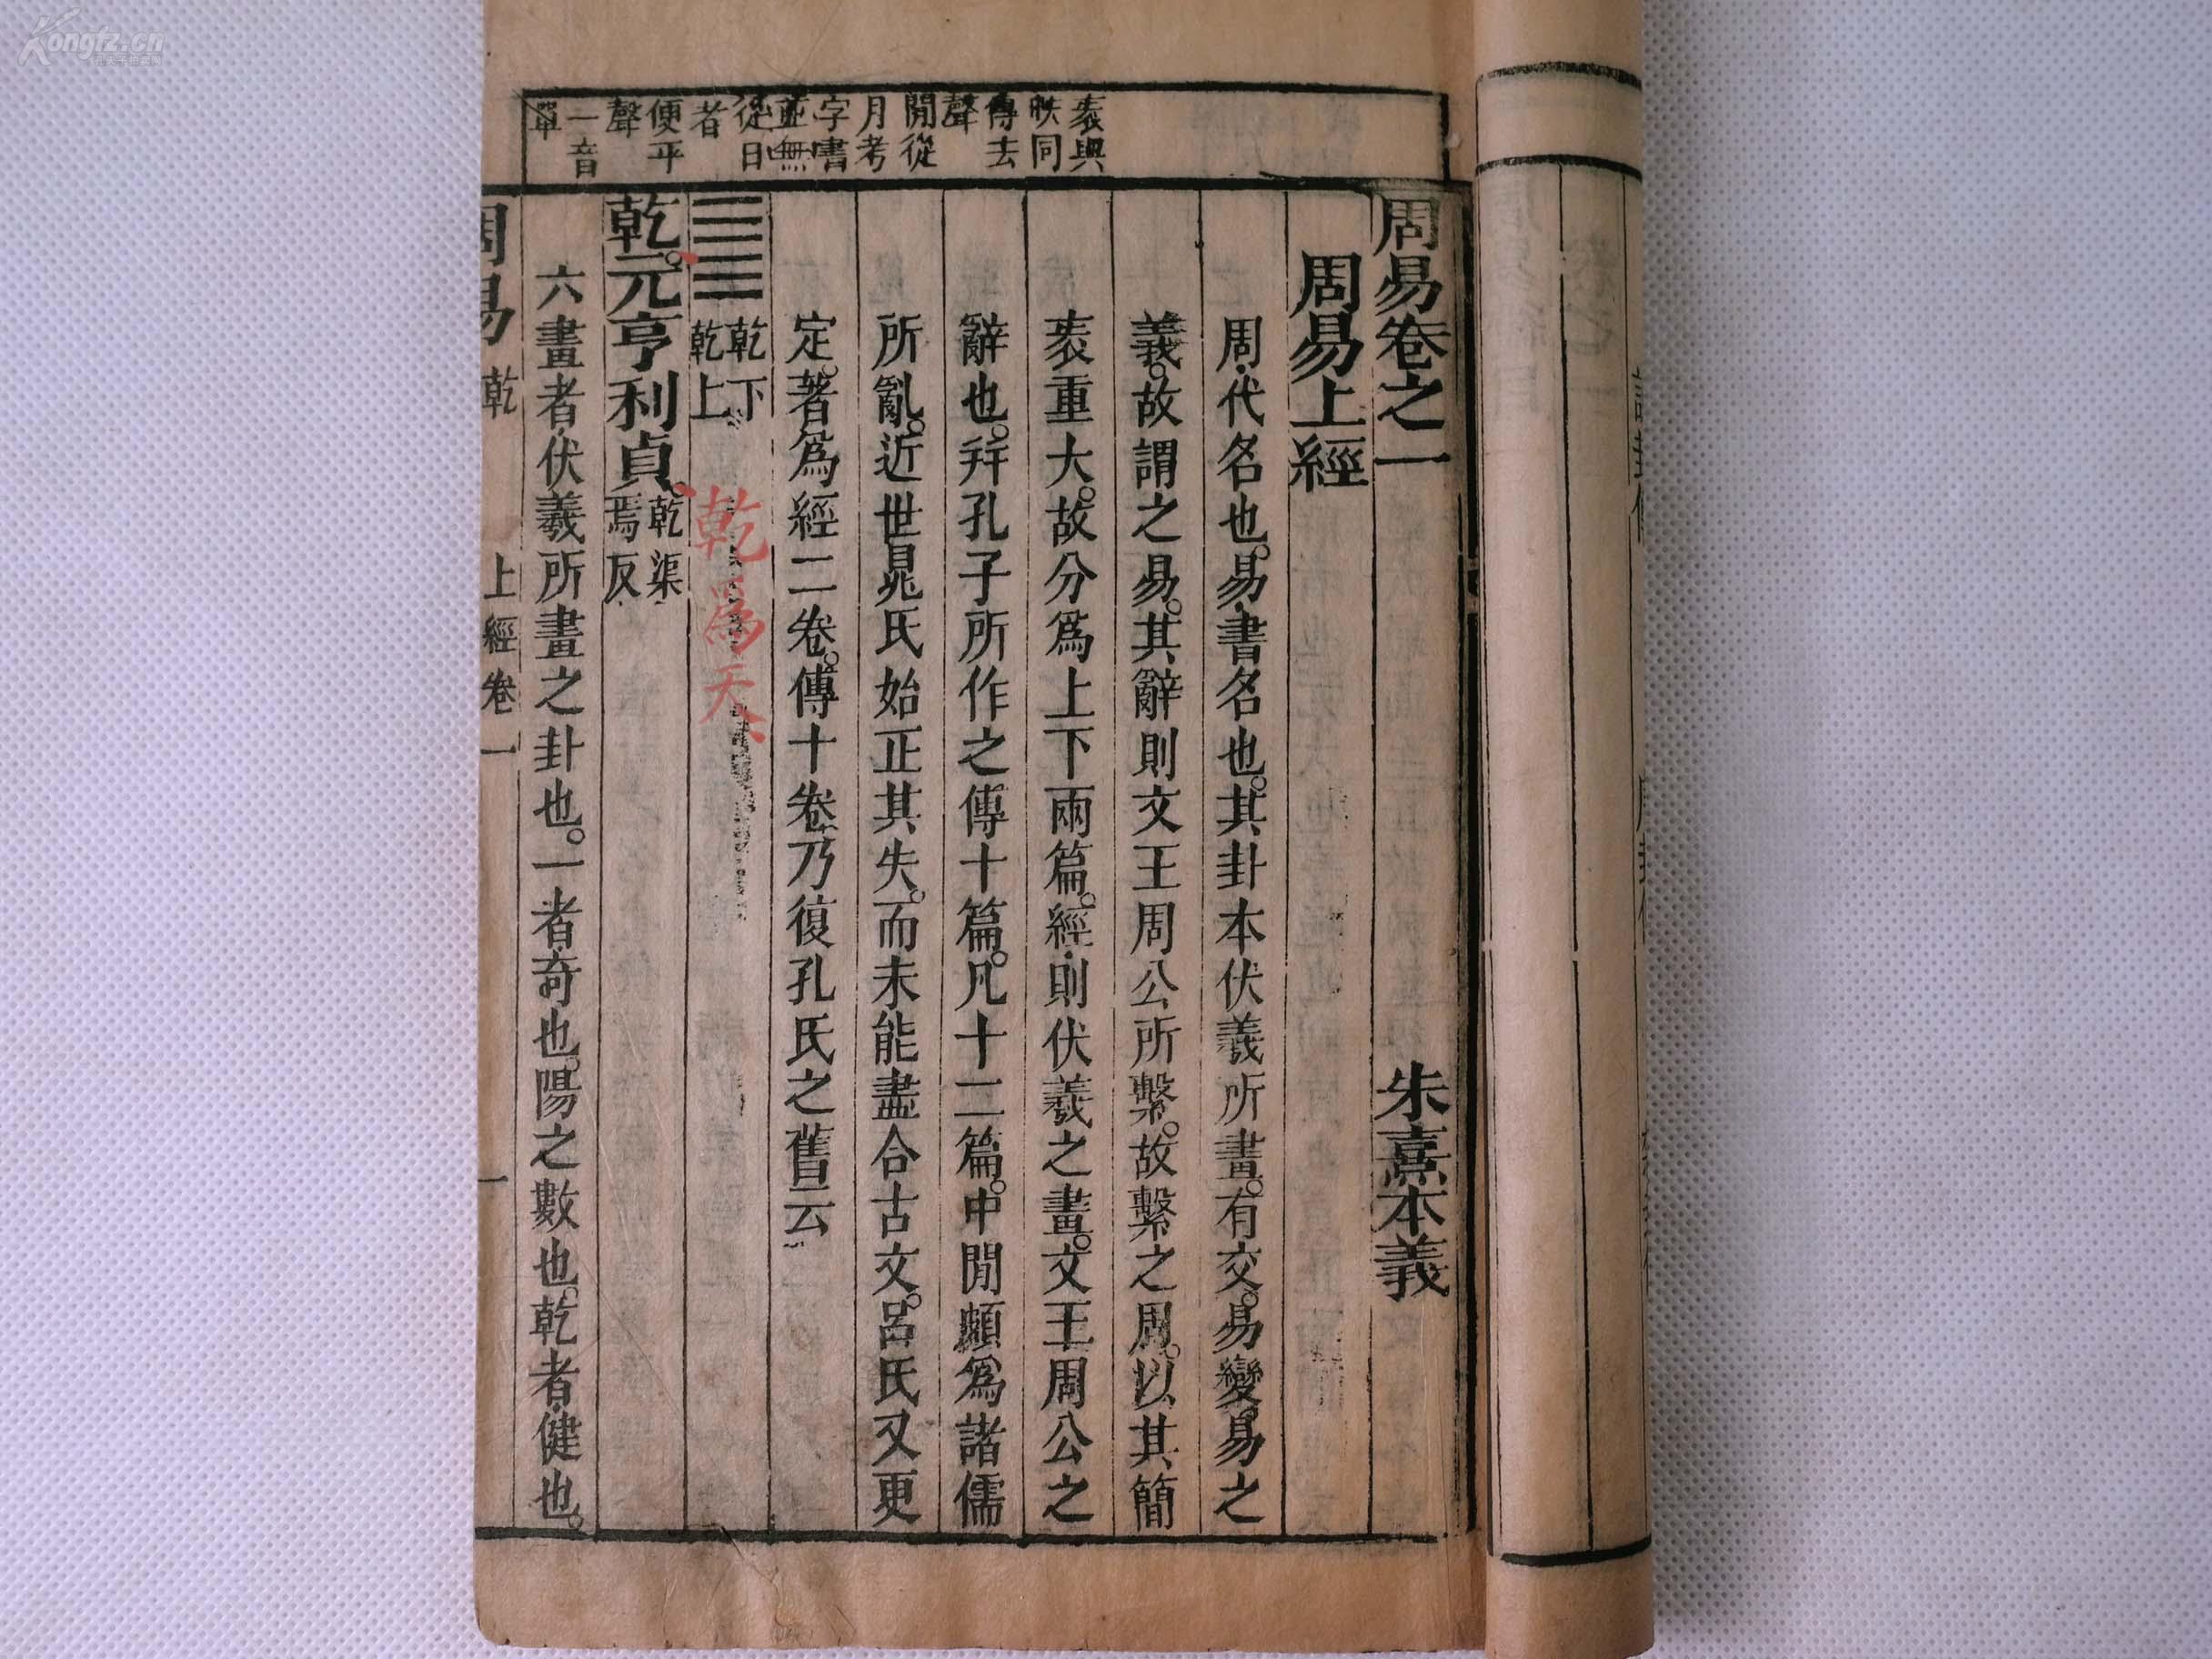 周易卷之一　朱熹本義
周易上經
周代名也易書名也其卦本伏羲所畫有交易變易之
義故謂之易其辭則文王周公所繫故繫之周以其簡
袠重大故分爲上下兩篇經則伏羲之畫文王周公之
辭也并孔子所作之傳十篇凡十二篇中閒頗爲諸儒
所亂近世晁氏始正其失而未能盡合古文呂氏又更
定著爲經二卷傳十卷乃復孔氏之舊云
乾下
乾上
乾爲天
乾元亨利貞
乾渠
焉反
六畫者伏羲所畫之卦也一者奇也陽之數也乾者健也
周易 乾 上經卷一 一
袠與
帙同
傳去
聲
閒從
月考
字書
並無
從日
者
便平
聲
一音
單
Kongfz.cn